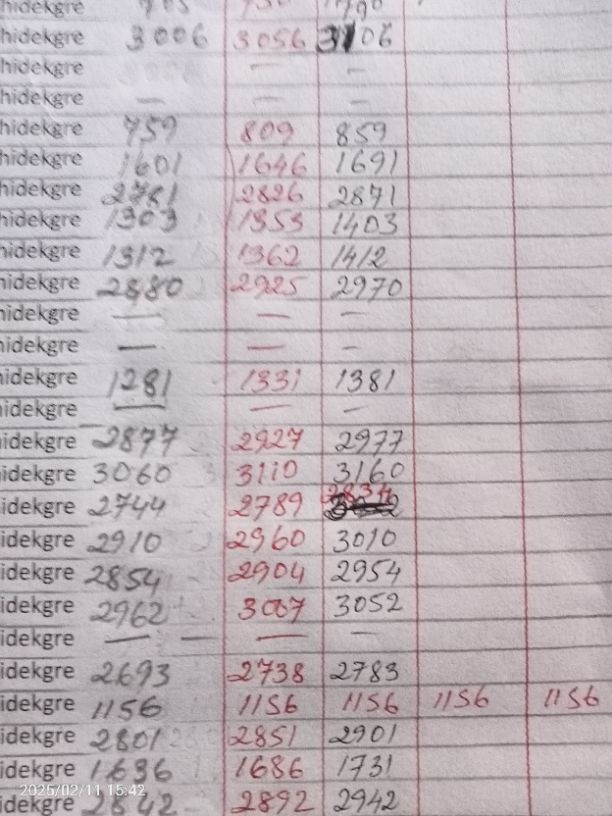 hidekgre
hidekgre 3006 3056 3106
hidekgre — —
hidekgre — — —
hidekgre 759 809 859
hidekgre 1601 1646 1691
hidekgre 2781 2826 2871
hidekgre 1303 1353 1403
hidekgre 1312 1362 1412
hidekgre 2880 2925 2970
hidekgre — — —
hidekgre — — —
hidekgre 1281 1331 1381
idekgre — — —
idekgre 2877 2927 2977
idekgre 3060 3110 3160
idekgre 2744 2789 2834
idekgre 2910 2960 3010
idekgre 2854 2904 2954
idekgre 2962 3007 3052
idekgre — — — —
idekgre 2693 2738 2783
idekgre 1156 1156 1156 1156 1156
idekgre 2801 2851 2901
idekgre 1636 1686 1731
2025/02/11 15:42
idekgre 2842 2892 2942